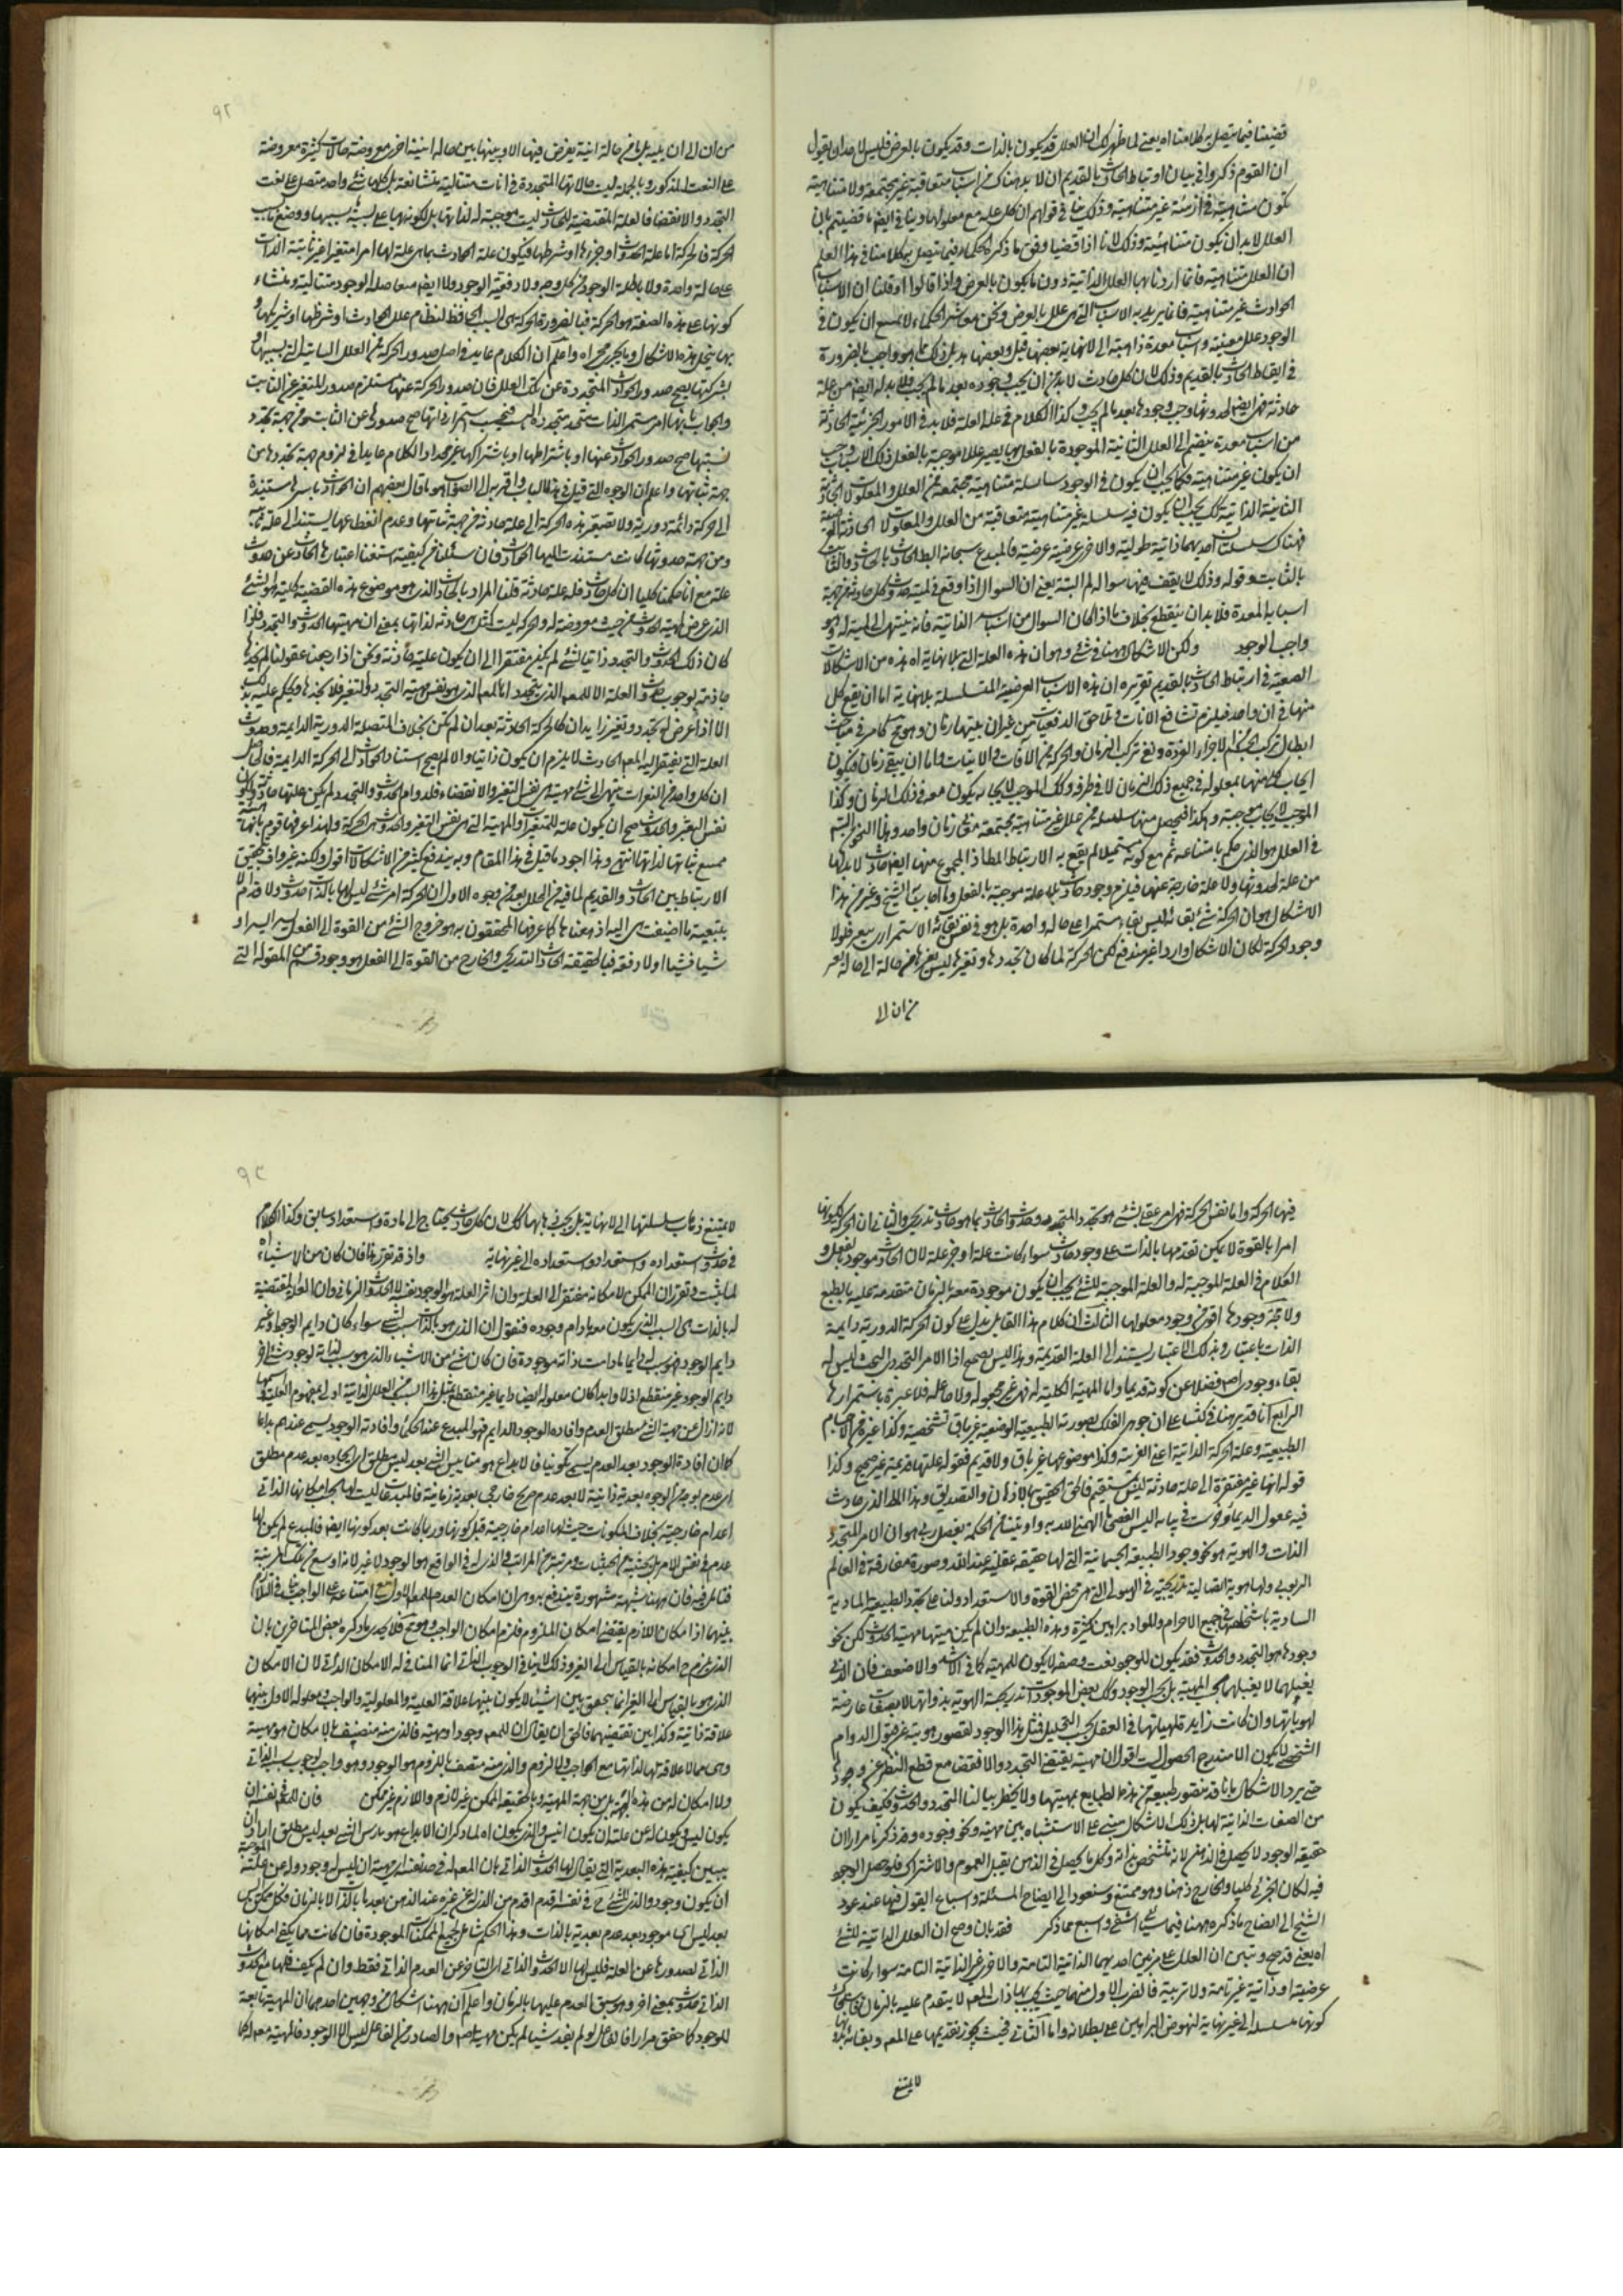 ٩٢
قضينا فيما يتصل به كلامنا اه يعني لما ظهر لك ان العلل قد يكون بالذات وقد يكون بالعرض فليس لاحد ان يقول
ان القوم ذكروا في بيان ارتباط الحادث بالقديم ان لا بد هناك من اسباب متعاقبة غير مجتمعة ولا متناهية
يكون متناهية في ازمنة غير متناهية وذلك ينافي قولهم ان كل علة مع معلولها وينافي ايضا ما قضيتم بان
العلل لا بد ان يكون متناهية وذلك لانا اذا قضينا وفق ما ذكره الحكماء فيما يتصل به كلامنا في هذا العلم
ان العلل متناهية فانما اردنا بها العلل الذاتية دون ما يكون بالعرض واذا قالوا او قلنا ان الاسباب
الحوادث غير متناهية فانما يريد به الاسباب التي هي علل بالعرض ونحن معاشر الحكماء لا نمنع ان يكون في
الوجود علل معينة واسباب معدة ذاهبة الى لا نهاية بعضها قبل وبعضها بعد بل ذلك مما هو واجب بالضرورة
في ارتباط الحادث بالقديم وذلك لان كل حادث لا بد من ان يجب وجوده بعد ما لم يجب فلا بد له ايضا من علة
حادثة فهي ايضا لحدوثها وجب وجودها بعد ما لم يجب وكذا الكلام في علة العلة فلا بد في الامور الجزئية الحادثة
من اسباب معدة ينضم الى العلل الثابتة الموجودة بالفعل بها يصير عللا موجبة بالفعل وتلك الاسباب وجب
ان يكون غير متناهية فكما يجب ان يكون في الوجود سلسلة متناهية مجتمعة من العلل والمعلولات
الثابتة الذاتية كذلك يجب ان يكون فيه سلسلة غير متناهية متعاقبة من العلل والمعلولات الحادثة
فهناك سلسلتان احديهما ذاتية طولية والاخرى عرضية عرضية فالمبدع سبحانه ربط الحادث بالحادث والثابت
بالثابت وقوله وذلك لا يقف فيها سؤال لم البتة يعني ان السؤال اذا وقع في لمية حدوث كل حادث من جهة
اسبابه المعدة فلا بد ان ينقطع بخلاف ما اذا كان السؤال من اسبابه الذاتية فانه ينتهي الى لمية له وهو
واجب الوجود ولكن الاشكال ههنا في شئ وهو ان هذه العلة التي بلا نهاية اه هذه من الاشكالات
الصعبة في ارتباط الحادث بالقديم تقريره ان هذه الاسباب العرضية المتسلسلة بلا نهاية اما ان يقع كل
منها في ان واحد فيلزم تشافع الانات وتلاحق الدفعيات من غير ان يتخللها زمان وهو مح كما مر في مباحث
ابطال تركب الجسم من الاجزاء الفردة ونفي تركب الزمان والحركة من الانات والانيات واما ان يبقى زمانا فيكون
ايجاب كل منها لمعلوله في جميع ذلك الزمان لا في طرفه وكذلك الموجب لايجابه يكون معه في ذلك الزمان وكذا
الموجب لايجاب موجبه وهكذا فتحصل منها سلسلة من علل غير متناهية مجتمعة معا في زمان واحد وهذا النحو
في العلل هو الذي حكم بامتناعه ثم مع كونه مستحيلا لم يقع به الارتباط المط اذ المجموع منها ايضا حادث لا بد لها
من علة لحدوثها ولا علة خارجة عنها فيلزم وجود حادث بلا علة موجبة بالفعل وما اجاب به الشيخ وغيره من هذا
الاشكال هو ان الحركة شئ بقاؤه ليس بقاء مستمرا على حالة واحدة بل هو في نفس بقائه الاستمراري يتغير فلولا
وجود الحركة لكان الاشكال واردا غير مندفع لكن الحركة لما كان تجددها وتغيرها ليس بتغيرها من حالة الى حالة
من ان الى
من ان الى ان يليه بل ما من حالة انية يفرض فيها الا وبينها وبين حالة انية اخرى معروضة حالات كثيرة معروضة
على النعت المذكور وبالجملة ليست حالاتها المتجددة في انات متتالية متشافعة بل كلها شئ واحد متصل على نعت
التجدد والانقضاء فالعلة المقتضية للحادث ليست موجبة له لذاتها بل لكونها على نسبة بسببها ووضع بسبب
الحركة فالحركة اما علة الحدوث او جزءها او شرطها فيكون علة الحادث بما هي علة لها امرا متغيرا غير ثابتة الذات
على حالة واحدة ولا باطلة الوجود من كل وجه ولا دفعية الوجود ولا ايضا متفاصلة الوجود متتالية ومنشاء
كونها على هذه الصفة هو الحركة فبالضرورة الحركة هي السبب الحافظ لنظام علل الحوادث او شرطها او شريكها و
بها ينحل هذه الاشكال وما يجري مجراه واعلم ان الكلام عايد في اصل صدور الحركة من العلل السابقة التي بسببها او
بشركتها يصح صدور الحوادث المتجددة عن تلك العلل فان صدور الحركة عنها يستلزم صدور المتغير عن الثابت
واجاب بانها امر مستمر الذات متجدد النسب فبحسب استمرار ذاتها صح صدورها عن الثابت ومن جهة تجدد
نسبتها صح صدور الحوادث عنها او باشتراطها او باشتراكها غير مجد اذ الكلام عايد في لزوم جهة تجددها من
جهة ثباتها واعلم ان الوجوه التي قيل في هذا الباب واقربها الى الصواب هو ما قال بعضهم ان الحوادث باسرها مستندة
الى حركة دائمة دورية ولا يفتقر هذه الحركة الى علة حادثة من جهة ثباتها وعدم انقطاعها يستند الى علة
ومن جهة حدوثها كانت مستندة اليها الحوادث فان سئلنا عن كيفية استغناء اعتبارها الحادث عن حدوث
علة مع انا حكمنا كليا ان كل حادث فله علة حادثة قلنا المراد بالحادث الذي هو موضوع هذه القضية الكلية هو الشئ
الذي عرض لمهيته الحدوث من حيث معروضة له والحركة ليست كذلك بل هي حادثة لذاتها بمعنى ان مهيتها الحدوث والتجدد ولذا
كان ذلك الحدوث والتجدد ذاتيا لشئ لم يكن مفتقرا الى ان يكون علته حادثة ونحن اذا رجعنا عقولنا لم نجدها
جازمة لوجوب حدوث العلة الا للمعلول الذي يتجدد اما المعلول الذي هو نفس مهية التجدد والتغير فلا نجدها حاكم عليه بذلك
الا اذا عرض له تجدد وتغير زايدان كالحركة الحادثة بعد ان لم يكن بخلاف المتصلة الدورية الدايمة وحدوث
العلة التي يفتقر اليها المعلول الحادث لا يلزم ان يكون ذاتيا والا لم يصح استناد الحوادث الى الحركة الدايمة فالحاصل
ان كل واحد من التغيرات ينتهي الى شئ مهيته هي نفس التغير والانقضاء فلدوام الحدوث والتجدد لم يكن علتها حادثة ولكون
نفس التغير والحدوث صح ان يكون علة للمتغيرات والمهية التي هي نفس التغير والحدوث هي الحركة ولهذا عرفها قوم بانها هيئة
يمتنع ثباتها لذاتها انتهى وهذا اجود ما قيل في هذا المقام وبه يندفع كثير من الاشكالات اقول ولكنه غير واف بتحقيق
الارتباط بين الحادث والقديم لما فيه من الخلل بعد من وجوه الاول ان الحركة امر شئ ليس لها بالذات حدوث ولا قدم الا
بتبعية ما اضيفت هي اليه اذ معناها كما عرفها المحققون به هو خروج الشئ من القوة الى الفعل يسيرا يسيرا او
شيئا فشيئا او لا دفعة فبالحقيقة الحادث التدريجي والخارج من القوة الى الفعل هو وجود قسم من المقولة التي
٩٣
فيها الحركة واما نفس الحركة فهي امر عقلي لشئ هو تجدد المتجدد وحدوث الحادث بما هو حادث تدريجي والثاني ان الحركة لكونها
امرا بالقوة لا يمكن تقدمها بالذات على وجود حادث سواء كانت علة او جزء علة لان الحادث موجود بالفعل و
الكلام في العلة الموجبة له والعلة الموجبة للشئ يجب ان يكون موجودة معه بالزمان متقدمة عليه بالطبع
ولا محة وجودها اقوى من وجود معلولها الثالث ان كلام هذا القايل يدل على كون الحركة الدورية دايمة
الذات باعتبار وبذلك الاعتبار يستند الى العلة القديمة وهذا ليس بصحيح اذا الامر التجددي البحت ليس له
بقاء وجودي اصلا فضلا عن كونه قديما واما المهية الكلية له فهي غير مجعولة ولا جاعلة فلا عبرة باستمرارها
الرابع انا قد برهنا في كتبنا على ان جوهر الفلك بصورته الطبيعية الوضعية غير باق بشخصيته وكذا غيره من الاجسام
الطبيعية وعلة الحركة الذاتية اعني القريبة وكذا موضوعها غير باق ولا قديم فقوله علتها قديمة غير صحيح وكذا
قوله انها غير مفتقرة الى علة حادثة ليس بمستقيم فالحق الحقيق بالاذعان والتصديق وهذا المط الذي حادث
فيه عقول الحكماء ... الحكمة بفضل ربي هو ان الامر المتجدد
الذات والهوية هو نحو وجود الطبيعة الجسمانية التي لها حقيقة عقلية عند الله وصورة مفارقة في العالم
الربوبي ولها هوية اتصالية تدريجية في الهيولى التي هي محض القوة والاستعداد ولنا على تجدد الطبيعة المادية
السارية باشخاصها في جميع الاجرام والمواد براهين كثيرة وهذه الطبيعة وان لم يكن مهيتها مهية الحدوث لكن نحو
وجودها هو التجدد والحدوث فقد يكون للوجود نعت وصفة لا يكون للمهية كما في الاشد والاضعف فان الذي
يقبلهما لا يقبلهما بحسب المهية بل بحسب الوجود وكذلك بعض الموجودات تدريجية الهوية بذواتها لا بصفات عارضة
لهوياتها وان كانت زايدة لمهياتها في العقل بحسب التحليل فمثل هذا الوجود لقصور هويته عن قبول الدوام
الشخصي لا يكون الا متدرج الحصول لست اقول ان مهيته يقتضي التجدد والانقضاء مع قطع النظر عن وجودها
حتى يرد الاشكال بانا قد نتصور طبيعة من هذه الطبايع بمهيتها ولا يخطر ببالنا التجدد والحدوث فكيف يكون
من الصفات الذاتية لها بل ذلك الاشكال مبني على الاشتباه بين مهيته ونحو وجوده وقد ذكرنا مرارا ان
حقيقة الوجود لا يحصل في الذهن لانه متشخص بذاته وكل ما يحصل في الذهن يقبل العموم والاشتراك فلو حصل الوجود
فيه لكان الجزئي كليا والخارج ذهنا وهو ممتنع وسنعود الى ايضاح المسئلة واشباع القول فيها عند عود
الشيخ الى ايضاح ما ذكره ههنا فيما سيأتي اشفى واوسع مما ذكر فقد بان وصح ان العلل الذاتية للشئ
اه يعني قد صح وتبين ان العلل على ضربين احديهما الذاتية التامة والاخرى غير الذاتية التامة سواء كانت
عرضية او ذاتية غير تامة ولا قريبة فالضرب الاول منهما حيث يجب بها ذات المعلول لا يتقدم عليه بالزمان
كونها متسلسلة الى غير نهاية لنهوض البراهين على بطلانه واما الثاني فحيث يجوز تقديمها على المعلول وبقائه بدونها
لا يمتنع
لا يمتنع ذهاب سلسلتها الى لا نهاية بل يجب فيها ذلك لان كل حادث يحتاج الى مادة واستعداد سابق وكذا الكلام
في حدوث استعداده واستعداد استعداده الى غير نهاية واذ قد تقرر هذا فان كان من الاشياء اه
لما ثبت وتقرر ان الممكن لامكانه مفتقر الى العلة وان اثر العلة هو الوجود نفسه لا الحدوث الزماني وان العلة المقتضية
له بالذات هي السبب الذي يكون معه ما دام وجوده فنقول ان الذي هو بالذات سبب لشئ سواء كان دايم الوجود او غير
دايم الوجود فهو سبب له دايما ما دامت ذاته موجودة فان كان شئ من الاشياء الذي هو سبب لذاته لوجود شئ اخر
دايم الوجود غير منقطع ازلا وابدا كان معلوله ايضا دايما غير منقطع فمثل هذا السبب من العلل الذاتية اولى بمفهوم العلية
لانه ازال عن مهية الشئ مطلق العدم وافاده الوجود الدايم فهو المبدع عند الحكماء وافادته الوجود يسمى عندهم ابداعا
كما ان افادة الوجود بعد العدم يسمى تكوينا فالابداع هو تاييس الشئ بعد ليس مطلق اي ايجاده بعد عدم مطلق
اي عدم بوجه من الوجوه بعدية ذاتية لا بعد عدم صريح خارجي بعدية زمانية فالمبدعات ليست لها بحسب امكانها الذاتي
اعدام خارجية بخلاف المكونات حيث لها اعدام خارجية قبل كونها وربما كانت بعد كونها ايضا فالمبدع لم يكن لها
عدم في نفس الامر بل بحيثية من الحيثيات ومرتبة من المراتب والذي له في الواقع هو الوجود لا غير لانه اوسع من تلك المرتبة
فتامل فيه فان ههنا شبهة مشهورة يندفع به وهي ان امكان العدم للمعلول الاول مع امتناعه على الواجب ينافي التلازم
بينهما اذا امكان اللازم يقتضي امكان الملزوم فلزم امكان الواجب وهو مح فلا يجدي ما ذكره بعض المتاخرين بان
الذي لزم ح امكانه بالقياس الى الغير وذلك لا ينافي الوجوب الذاتي انما المنافي له الامكان الذاتي لان الامكان
الذي هو بالقياس الى الغير انما يتحقق بين اشياء لا يكون بينها علاقة العلية والمعلولية والواجب ومعلوله الاول بينهما
علاقة ذاتية وكذا بين نقيضيهما فالحق ان يقال ان للمعلول وجودا ومهية فالذي منه متصف بالامكان هو مهيته
وهي مما لا علاقة لها لذاتها مع الواجب ولا لزوم والذي منه متصف باللزوم هو الوجود وهو واجب لوجوب سببه الذاتي
ولا امكان له من هذه الجهة بل من جهة المهية وبالحقيقة الممكن غير لازم واللازم غير ممكن فان للمعلول في نفسه ان
يكون ليس ويكون له عن علته ان يكون ايس والذي يكون اه لما ذكر ان الابداع هو تاييس الشئ بعد ليس مطلق اراد ان
يبين كيفية هذه البعدية التي يقال لها الحدوث الذاتي بان المعلول له في حد نفسه اي مهيته ان ليس له وجود وله عن علته الموجبة
ان يكون وجود والذي للشئ في نفسه اقدم من الذي له عن غيره عند الذهن بعدية بالذات لا بالزمان فكل ممكن ايس
بعد ليس اي موجود بعد عدم بعدية بالذات وهذا الحكم شامل لجميع الممكنات الموجودة فان كانت مما يكفي امكانها
الذاتي لصدورها عن العلة فليس لها الا الحدوث الذاتي اي التاخر عن العدم الذاتي فقط وان لم يكف فلها مع الحدوث
الذاتي حدوث بمعنى اخر وهو سبق العدم عليها بالزمان واعلم ان ههنا اشكال من وجهين احدهما ان المهية تابعة
للوجود كما حقق مرارا فالفاعل لو لم يفد شيئا لم يكن مهية اصلا والصادر من الفاعل ليس الا الوجود فالمهية معلولة